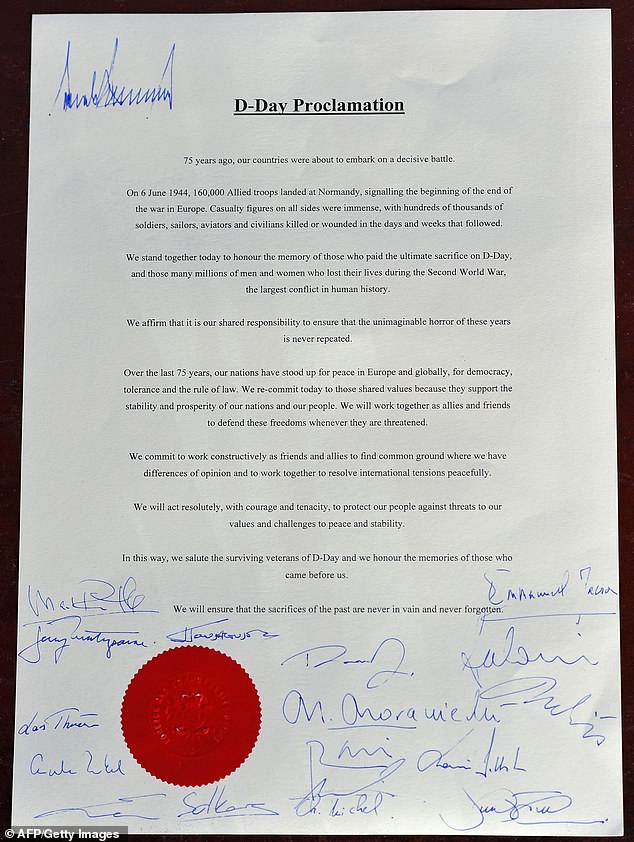 D-Day Proclamation
75 years ago, our countries were about to embark on a decisive battle.
On 6 June 1944, 160,000 Allied troops landed at Normandy, signalling the beginning of the end of
the war in Europe. Casualty figures on all sides were immense, with hundreds of thousands of
soldiers, sailors, aviators and civilians killed or wounded in the days and weeks that followed.
We stand together today to honour the memory of those who paid the ultimate sacrifice on D-Day,
and those many millions of men and women who lost their lives during the Second World War,
the largest conflict in human history.
We affirm that it is our shared responsibility to ensure that the unimaginable horror of these years
is never repeated.
Over the last 75 years, our nations have stood up for peace in Europe and globally, for democracy,
tolerance and the rule of law. We re-commit today to those shared values because they support the
stability and prosperity of our nations and our people. We will work together as allies and friends
to defend these freedoms whenever they are threatened.
We commit to work constructively as friends and allies to find common ground where we have
differences of opinion and to work together to resolve international tensions peacefully.
We will act resolutely, with courage and tenacity, to protect our people against threats to our
values and challenges to peace and stability.
In this way, we salute the surviving veterans of D-Day and we honour the memories of those who
came before us.
Emmanuel Macron
We will ensure that the sacrifices of the past are never in vain and never forgotten.
M. Morawiecki
Ch. Michel
© AFP/Getty Images